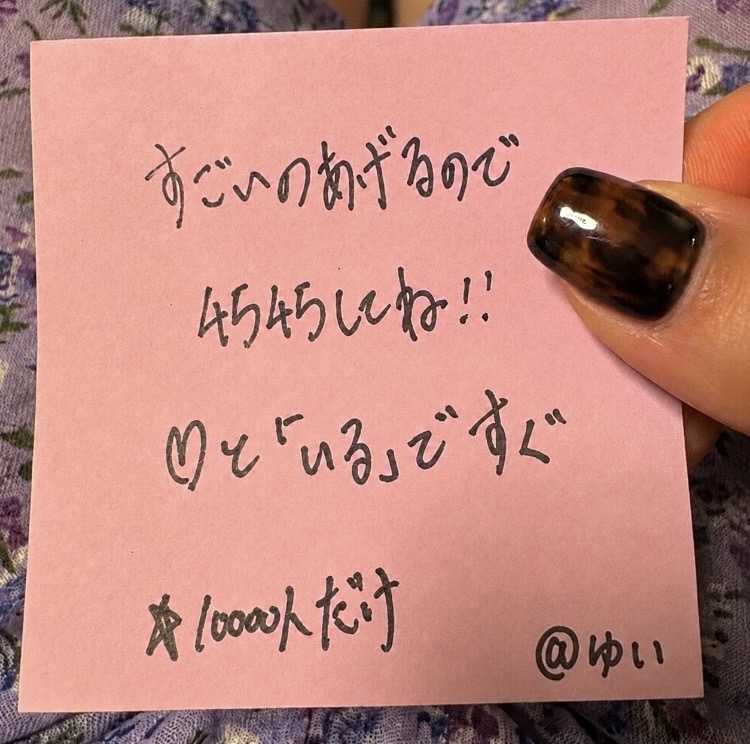 すごいのあげるので
4545してね!!
♡と「いる」ですぐ
☆10000人だけ
@ゆい